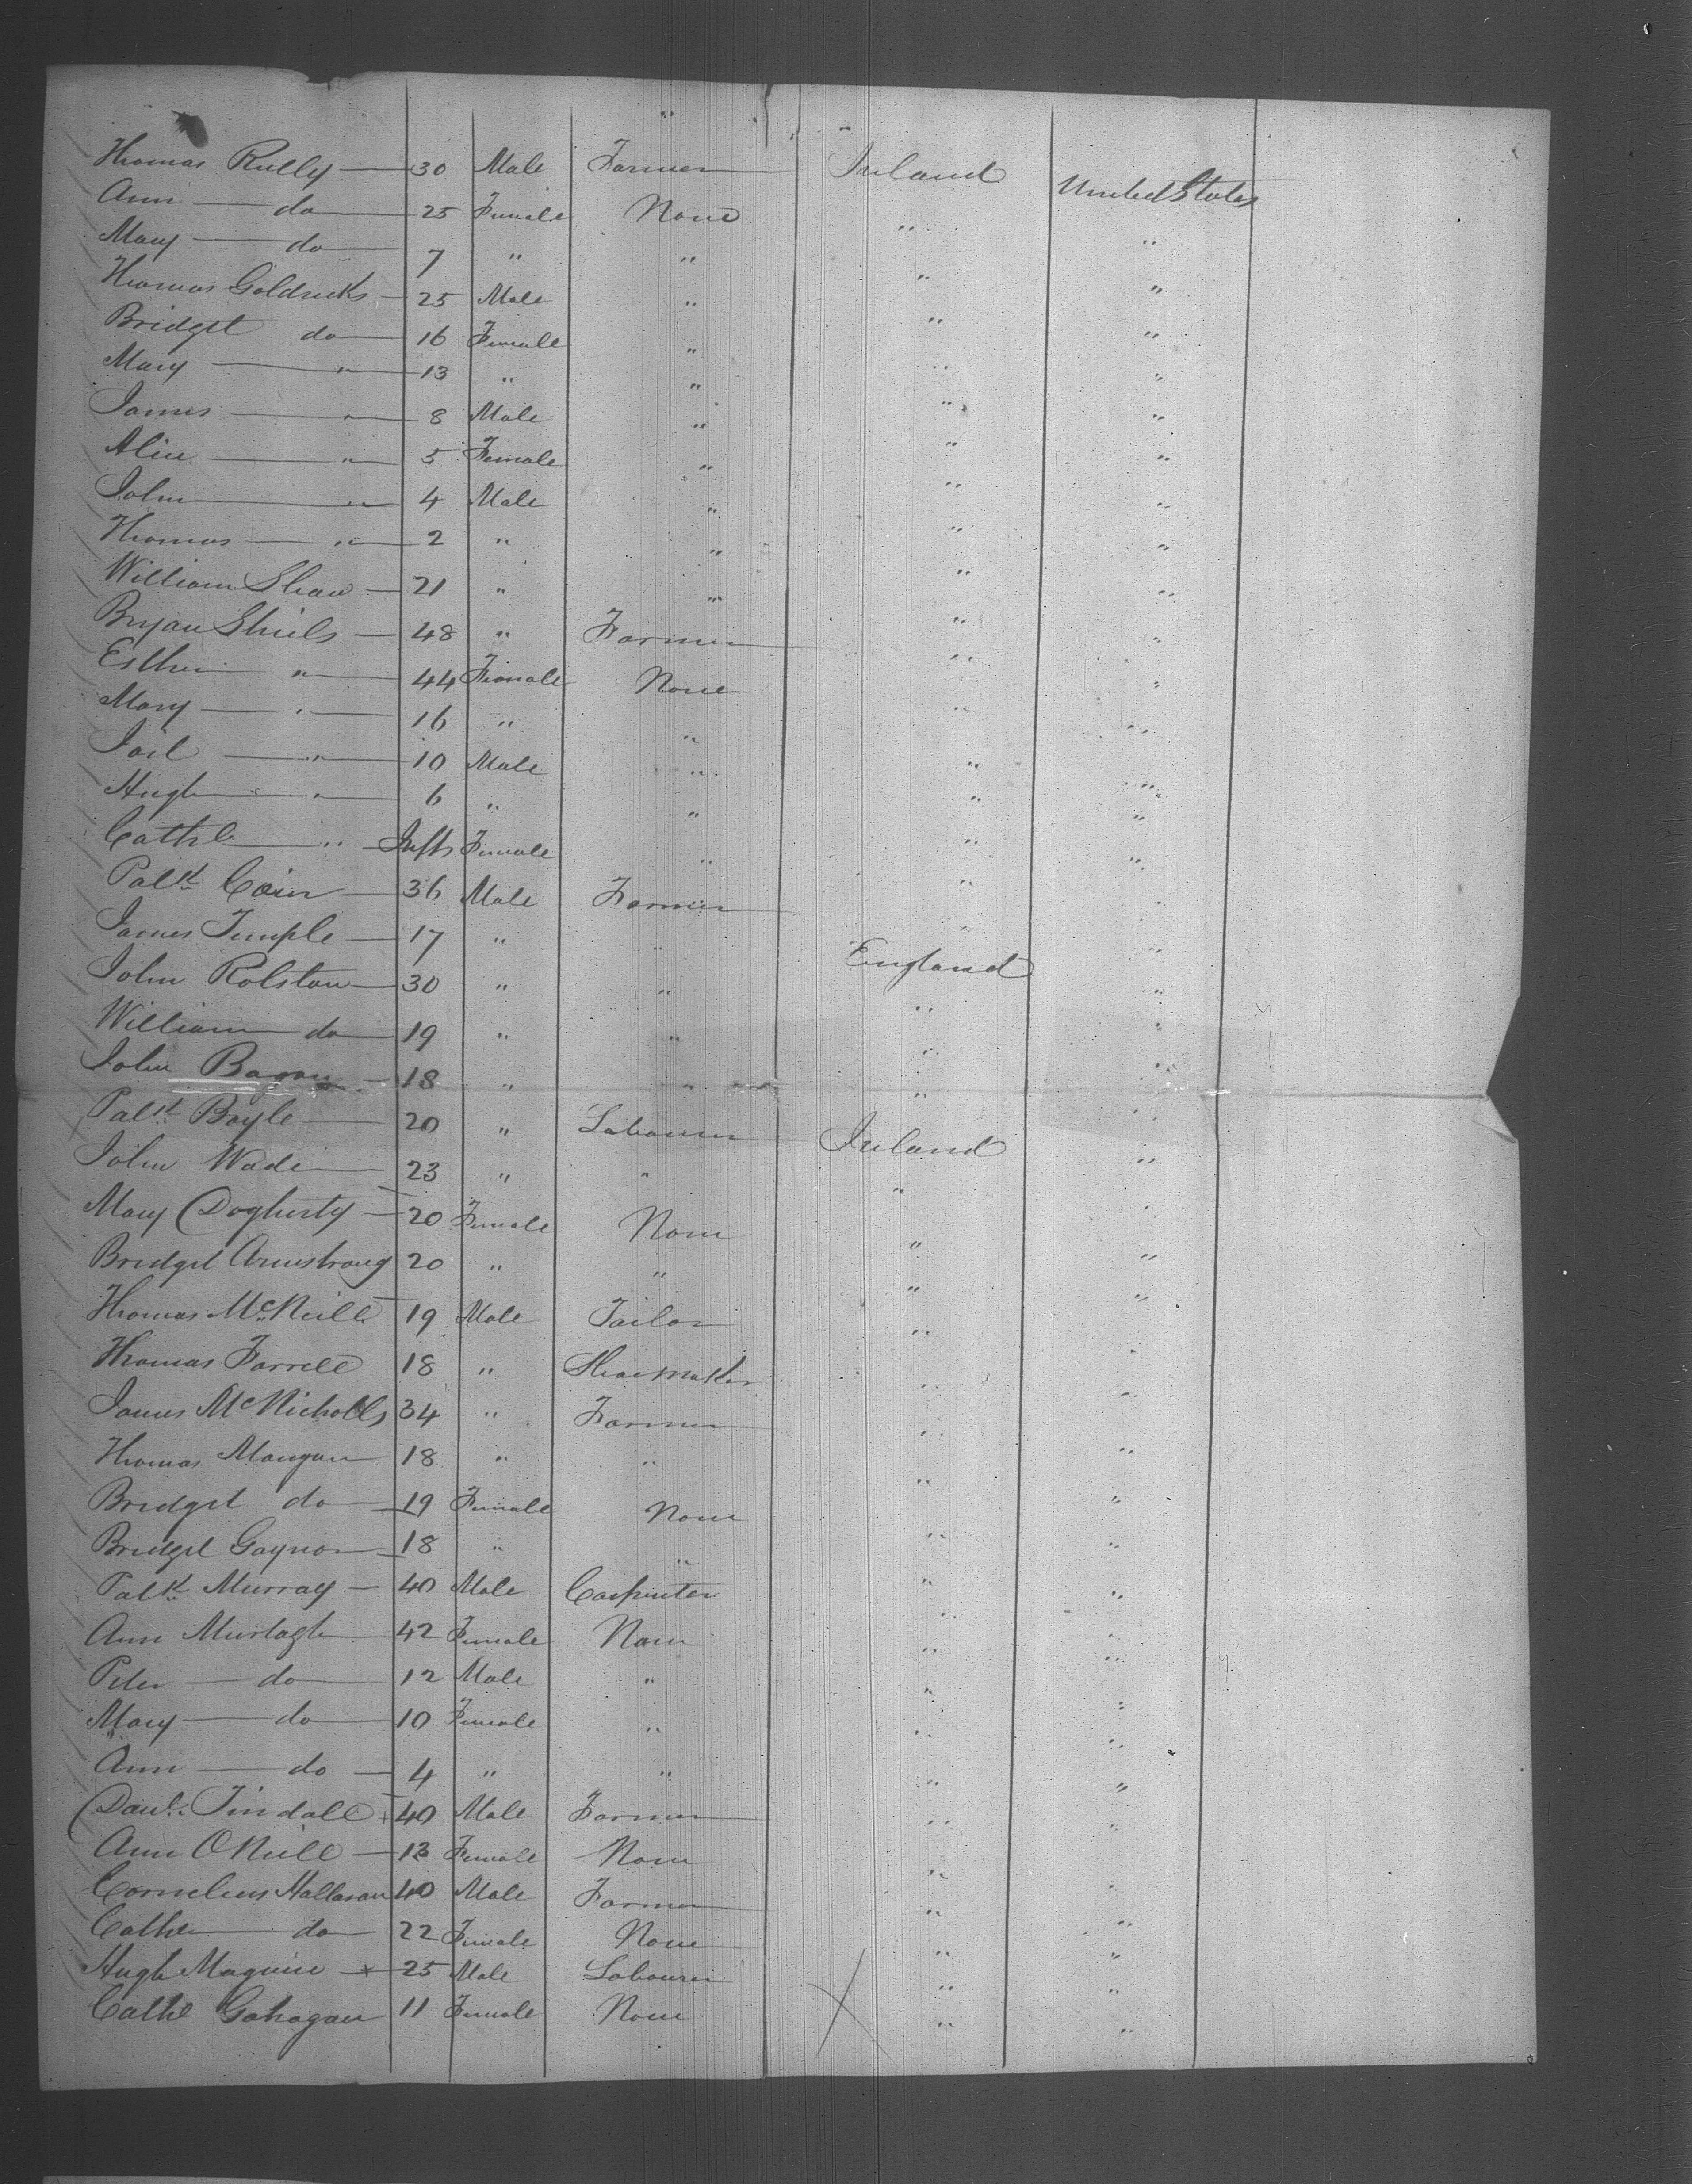 Thomas Rielly 30 Male Farmer Ireland United States
Ann do 25 Female None " "
Mary do 7 " " " "
Thomas Goldricks 25 Male " " "
Bridget do 16 Female " " "
Mary " 13 " " " "
James " 8 Male " " "
Alice " 5 Female " " "
John " 4 Male " " "
Thomas " 2 " " " "
William Shaw 21 " " " "
Bryan Shiels 48 " Farmer " "
Esther " 44 Female None " "
Mary " 16 " " " "
" 10 Male " " "
Hugh " 6 " " " "
Cathe " Inft Female " " "
Patk Cain 36 Male Farmer " "
James Temple 17 " " England "
John Rolston 30 " " " "
William do 19 " " " "
John 18 " " " "
Patk Boyle 20 " Labourer Ireland "
John Wade 23 " " " "
Mary Dogherty 20 Female None " "
Bridget Armstrong 20 " " " "
Thomas McNeill 19 Male Tailor " "
Thomas Farrell 18 " Shoemaker " "
James McNicholls 34 " Farmer " "
Thomas Mangan 18 " " " "
Bridget do 19 Female None " "
Bridget Gaynor 18 " " " "
Patk Murray 40 Male Carpenter " "
Ann Murtagh 42 Female None " "
Peter do 12 Male " " "
Mary do 10 Female " " "
Ann do 4 " " " "
Danl. Tindall 40 Male Farmer " "
Ann ONeill 13 Female None " "
Cornelius Hallaran 40 Male Farmer " "
Cathe do 22 Female None " "
Hugh Maguire x 25 Male Labourer " "
Cathe Gahagan 11 Female None " "